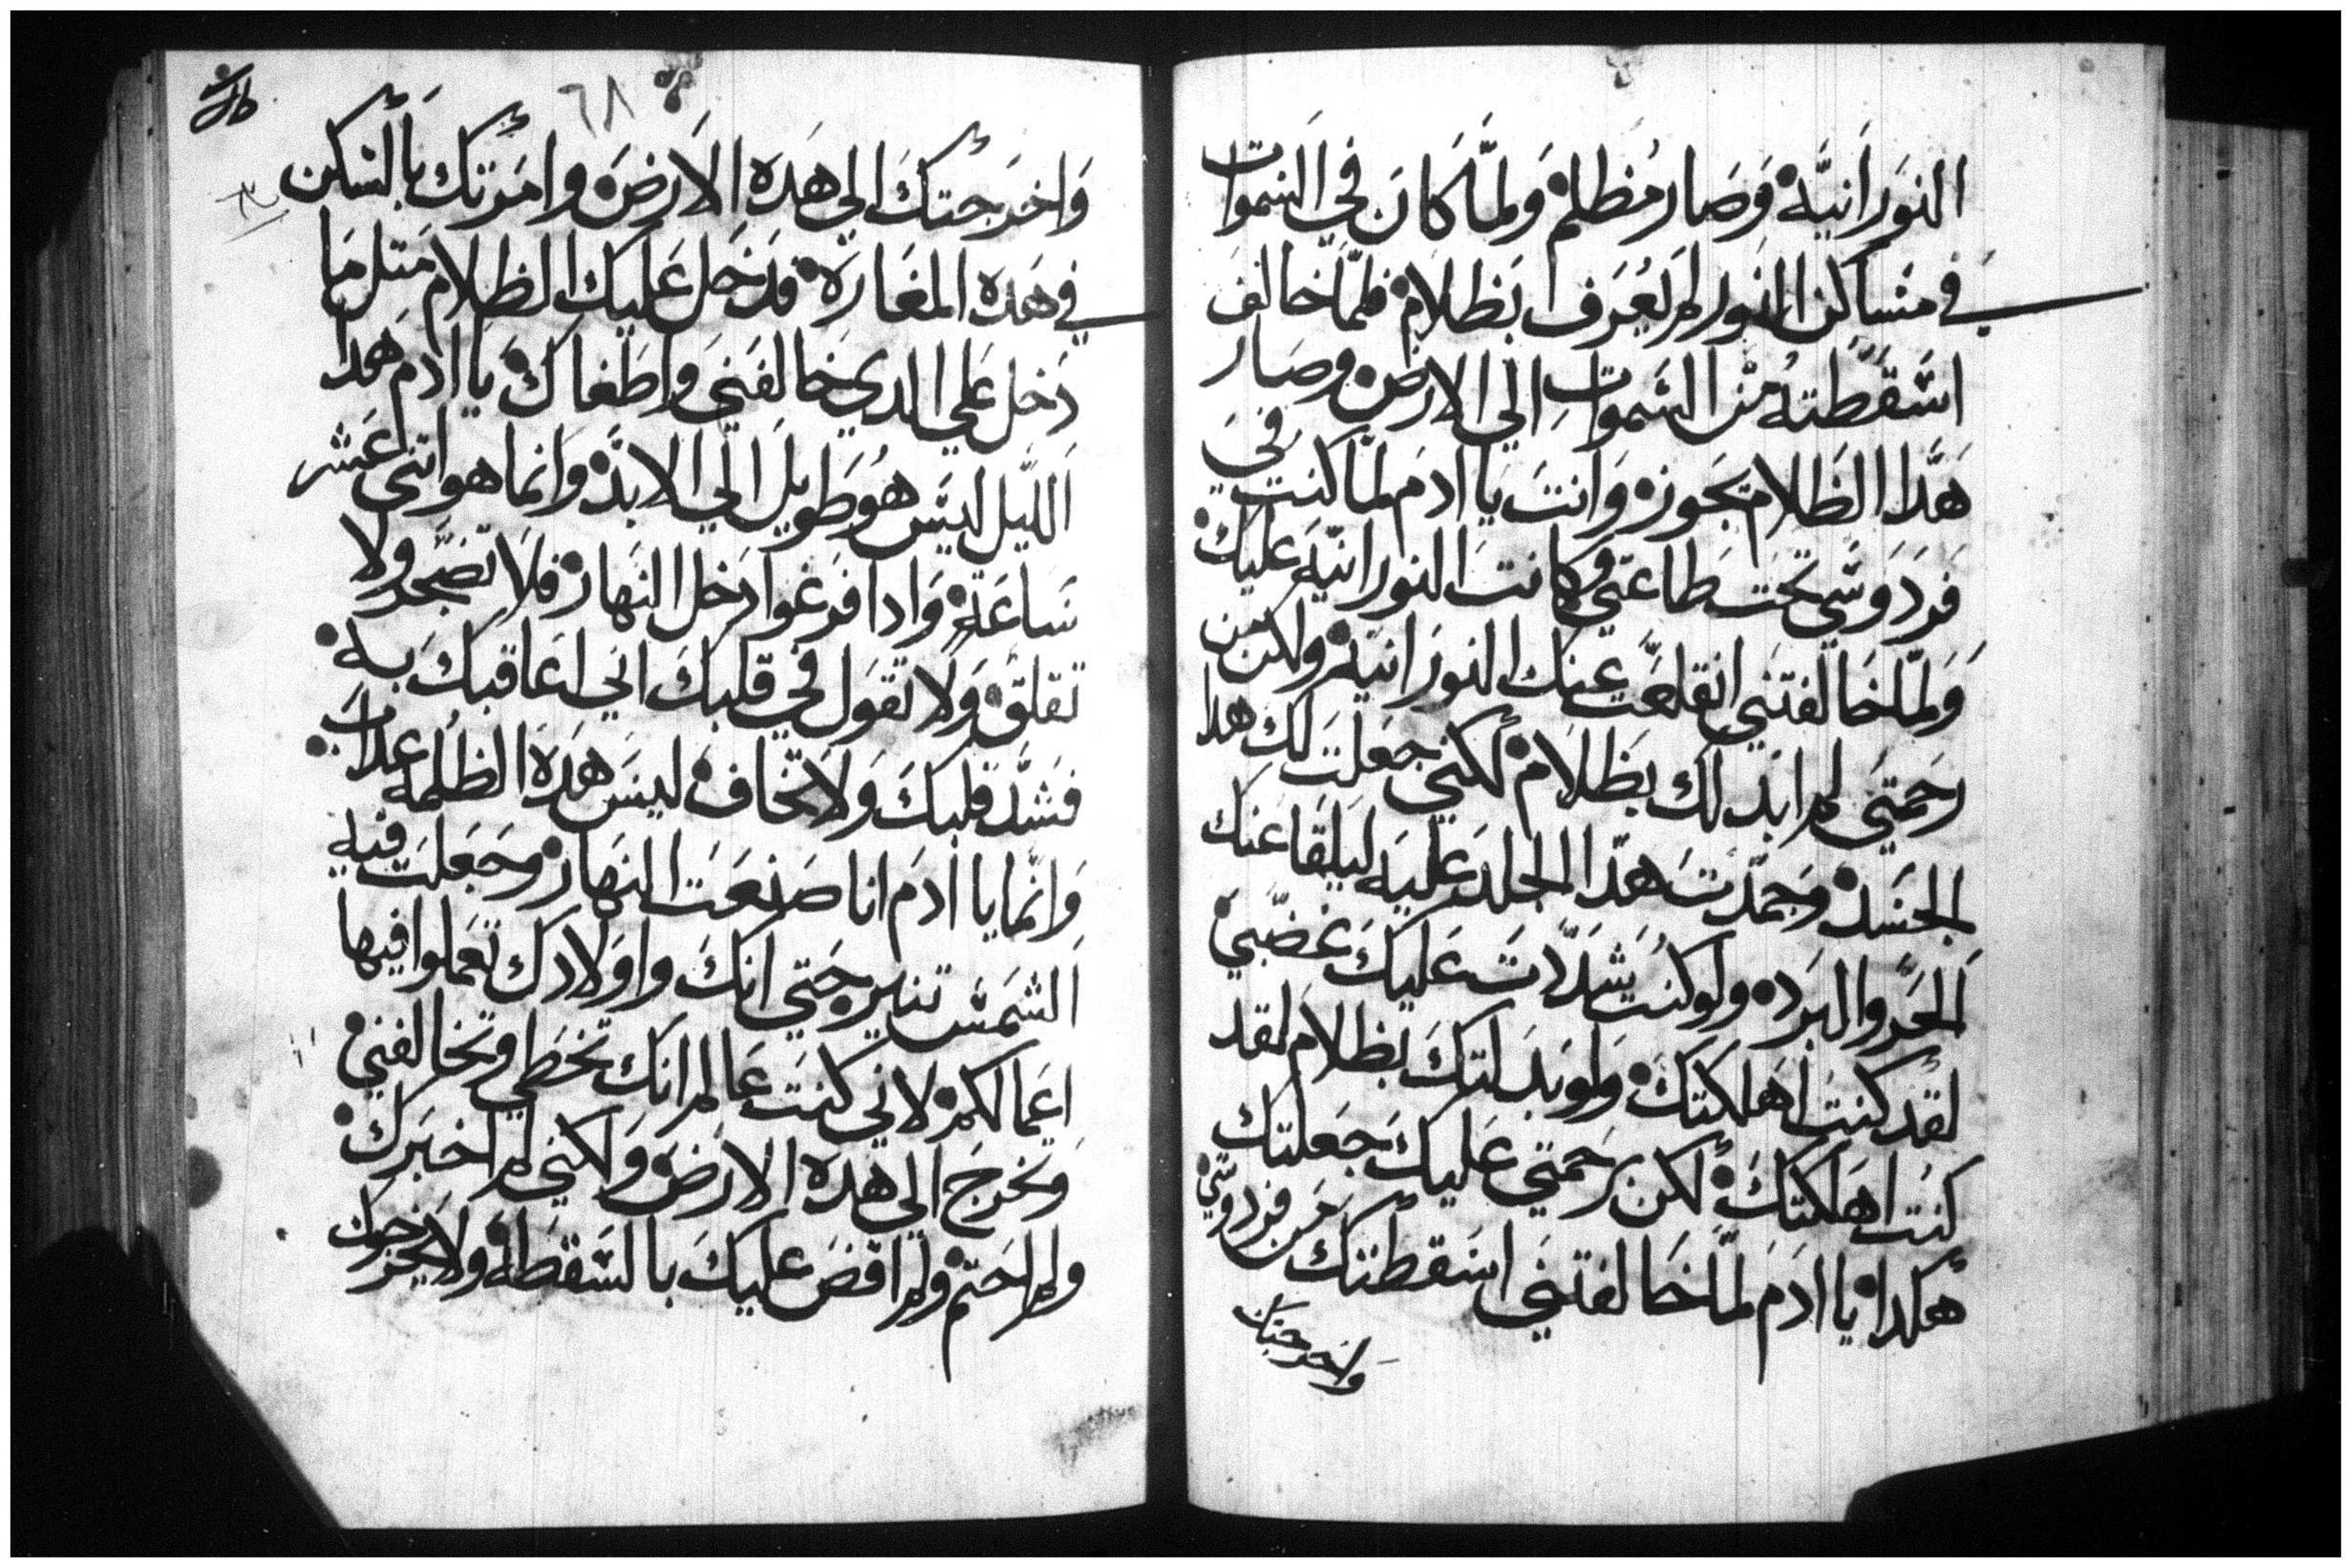 النورانيّة وصار مظلم ولمّا كان في السموات
في مساكن النور لم يعرف بظلام فلمّا خالف
اسقطته من السموات الي الارض وصار
هدا الظلام يجوزه وانت يا ادم لمّا كنت في
فردوسي تحت طاعتي وكانت النورانيّة عليك
ولمّا خالفتني انقلعت عنك النورانيّة ولكن من
رحمتي لم ابدلك بظلام لكني جعلت لك هدا
الجسد وجمّدت هدا الجلد عليه ليلقا عنك
الحر والبرد ولو كنت شدّدت عليك غضبي
لقد كنت اهلكتك ولو بدلتك بظلام لقد
كنت اهلكتك لكن رحمتي عليك جعلتك
هكدا يا ادم لمّا خالفتني اسقطتك من فردوسي
واخرجتك
٦٨
واخرجتك الي هده الارض وامرتك بالسكن
في هده المغارة فدخل عليك الظلام متل ما
دخل علي الدي خالفني واطغاك يا ادم هدا
الليل ليس هو طويل الي الابد وانما هو اتني عشر
ساعة وادا فرغوا دخل النهار فلا تضجر ولا
تقلق ولا تقول في قلبك اني اعاقبك به
فشد قلبك ولا تخاف ليس هده الظلمه عداب
وانما يا ادم انا صنعت النهار وجعلت فيه
الشمس تنير حتي انك واولادك تعملوا فيها
اعمالكم لاني كنت عالم انك تخطي وتخالفني
وتخرج الي هده الارض ولكني لم اخبرك
ولم احتم ولم اقض عليك بالسقطة ولا بخروجك